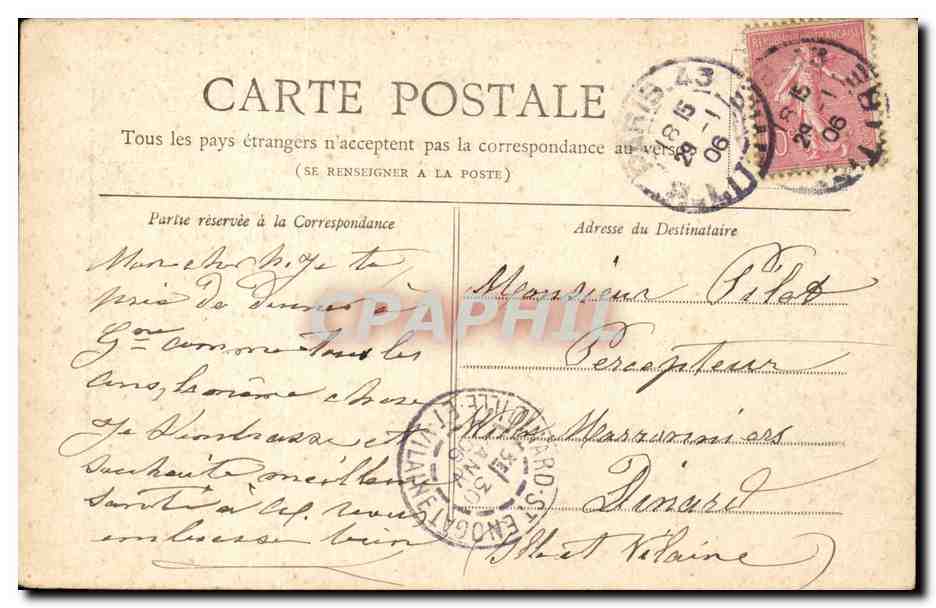 CARTE POSTALE
Tous les pays étrangers n'acceptent pas la correspondance au verso
(SE RENSEIGNER A LA POSTE)
Partie réservée à la Correspondance
Mon cher je te
prie de donner à
comme tous les
ans, la même chose
Je t'embrasse et
souhaite meilleure
santé à
embrasse bien
Adresse du Destinataire
Monsieur Pilat
Percepteur
Villa
Dinard
Ille et Vilaine
PARIS 43
8 15
29 -1
06
8 15
29 -1
06
DINARD-ST ENOGAT
ILLE-ET-VILAINE
30
JANV
06
CPAPHIL